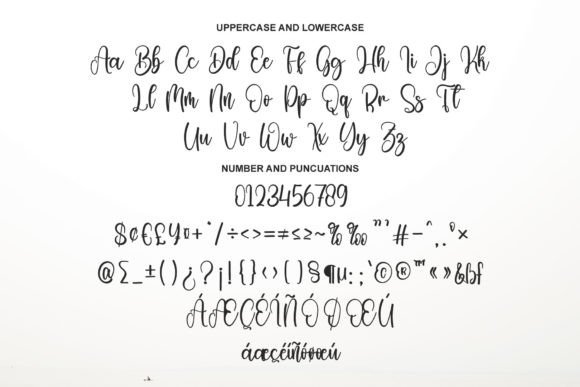 UPPERCASE AND LOWERCASE
Aa Bb Cc Dd Ee Ff Gg Hh Ii Jj Kk
Ll Mm Nn Oo Pp Qq Rr Ss Tt
Uu Vv Ww Xx Yy Zz
NUMBER AND PUNCUATIONS
0123456789
$¢€£¥¤+*/÷<>=≠≤≥~%‰"'#-^,.°×
@∑_±()¿?¡!{}‹›[]§¶µ:;`©®™«»&
ÁÆÇÉÍÑÓØŒÚ
áæçéíñóøœú